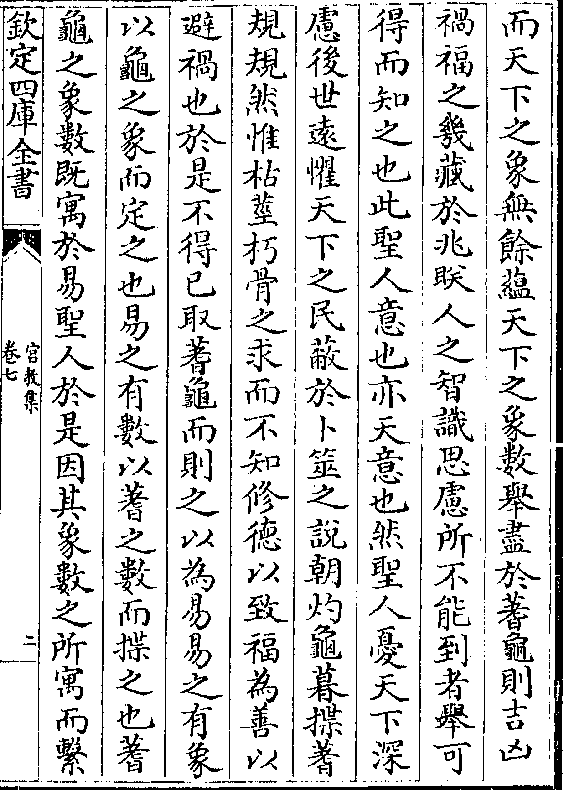 而天下之象無餘蘊天下之象數舉盡於蓍龜則吉凶
禍福之幾藏於兆眹人之智識思慮所不能到者舉可
得而知之也此聖人意也亦天意也然聖人憂天下深
慮後世遠懼天下之民蔽於卜筮之說朝灼龜暮揲蓍
規規然惟枯莖朽骨之求而不知修德以致福為善以
避禍也於是不得已取蓍龜而則之以為易易之有象
以龜之象而定之也易之有數以蓍之數而揲之也蓍
龜之象數既寓於易聖人於是因其象數之所寓而繫
欽定四庫全書
宮教集
卷七
二